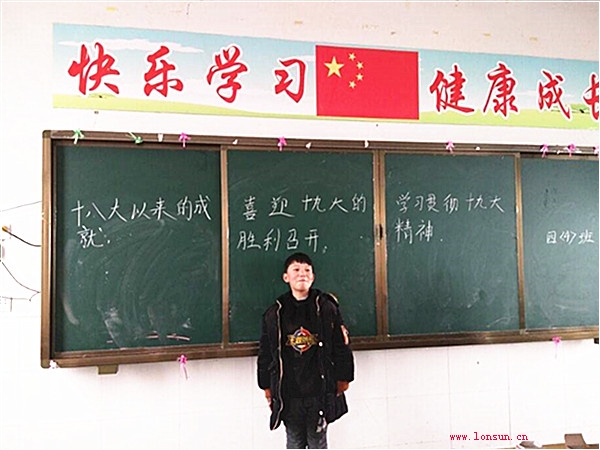 快乐学习 健康成长
十八大以来的成
就.
喜迎十九大的
胜利召开。
学习贯彻十九大
精神.
四(4)班
www.lonsun.cn